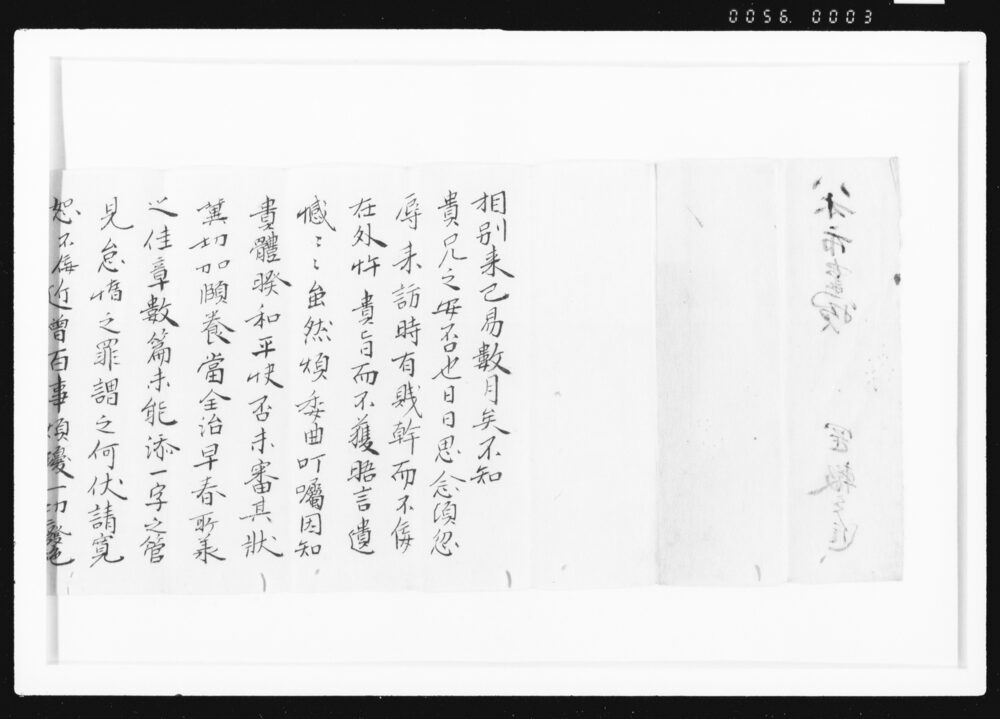 0056. 0003
相別来已易數月矣不知
貴兄之安否也日日思念須忽
辱来訪時有賤幹而不侮
在外忤貴旨而不獲晤言遺
憾〻〻虽然煩委曲叮嘱因知
貴體暌和平快否未審其狀
冀切加頤養當全治早春所羕
之佳章數篇未能添一字之管
見怠惰之罪謂之何伏請寛
恕不侮近曾百事煩擾一切